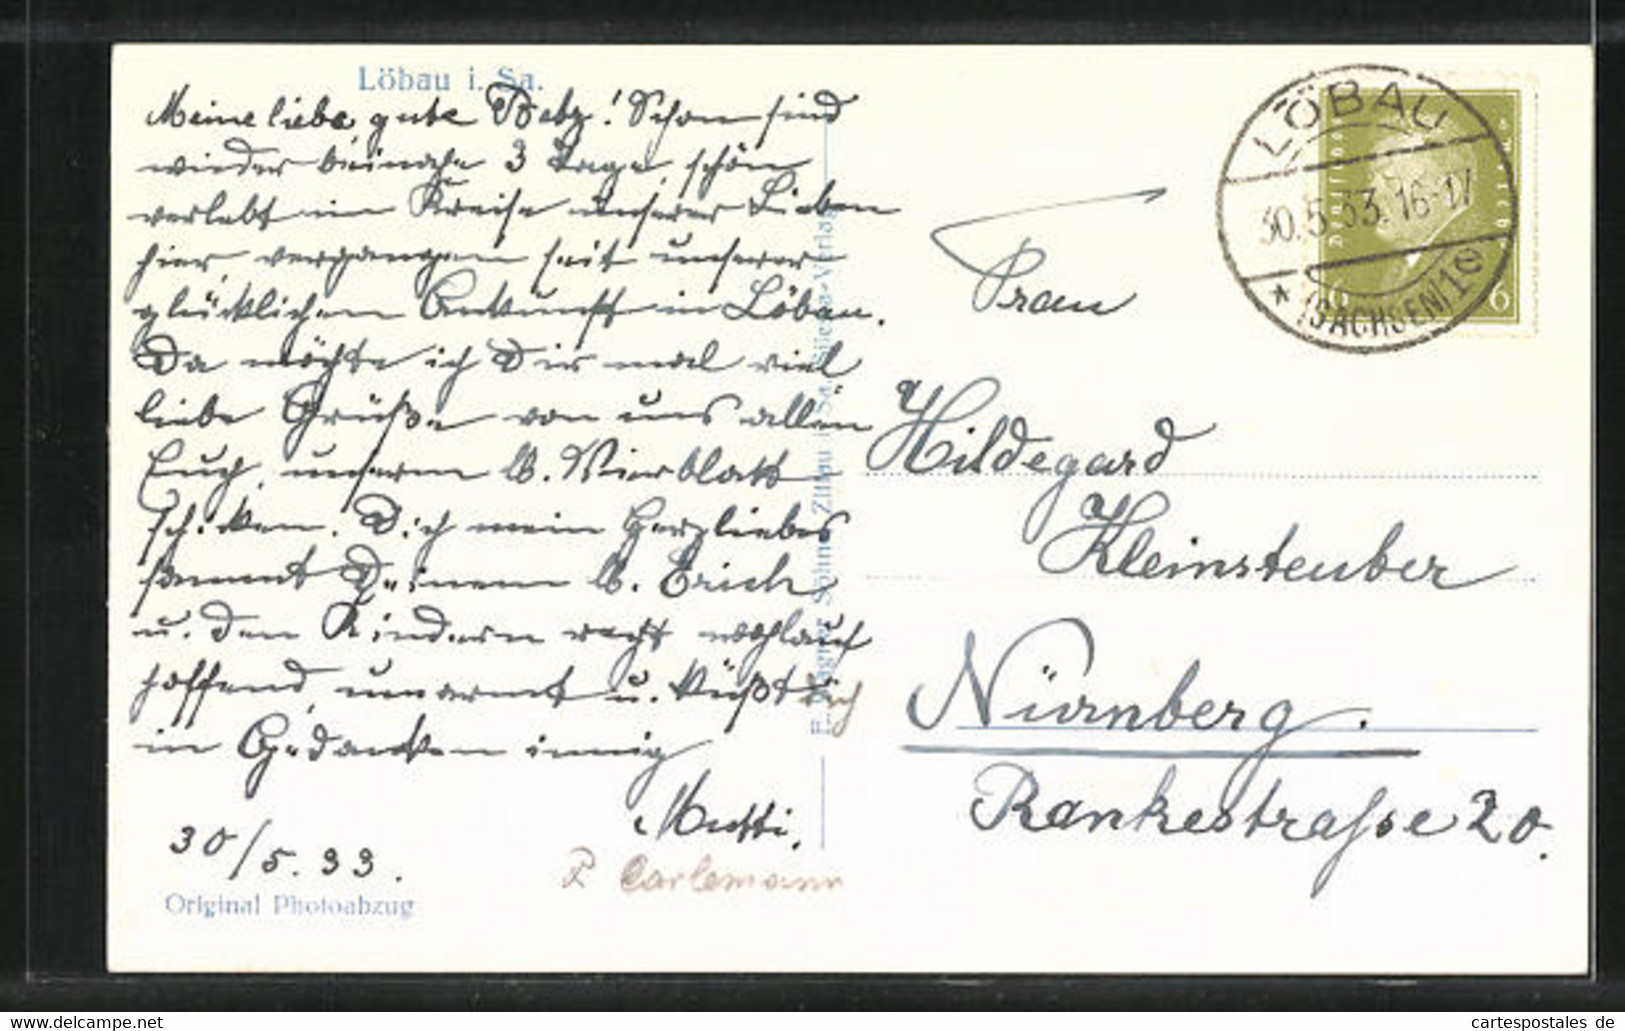 Löbau i. Sa.
Meine liebe, gute Betz! Schon sind
wieder beinahe 3 Tage, schön
verlebt im Kreise unserer Lieben
hier, vergangen seit unserer
glücklichen Ankunft in Löbau.
Da möchte ich Dir mal viel
liebe Grüße von uns allen
Euch, unserem lb. Vierblatt
schicken. Dich mein Herzliebes
sammt Deinem lb. Erich
u. den Kindern recht wohlauf
hoffend, umarmt u. küßt Dich
in Gedanken innig
Mutti.
30/5.33.
P Carlemann
Original Photoabzug
E. Wagner Söhne, Zittau i. Sa., Verlag
LÖBAU
30.5.33.16-17
* (SACHSEN) 1
Deutsches Reich
6 6
Frau
Hildegard
Kleinsteuber
Nürnberg.
Rankestrasse 20.
www.cartespostales.de